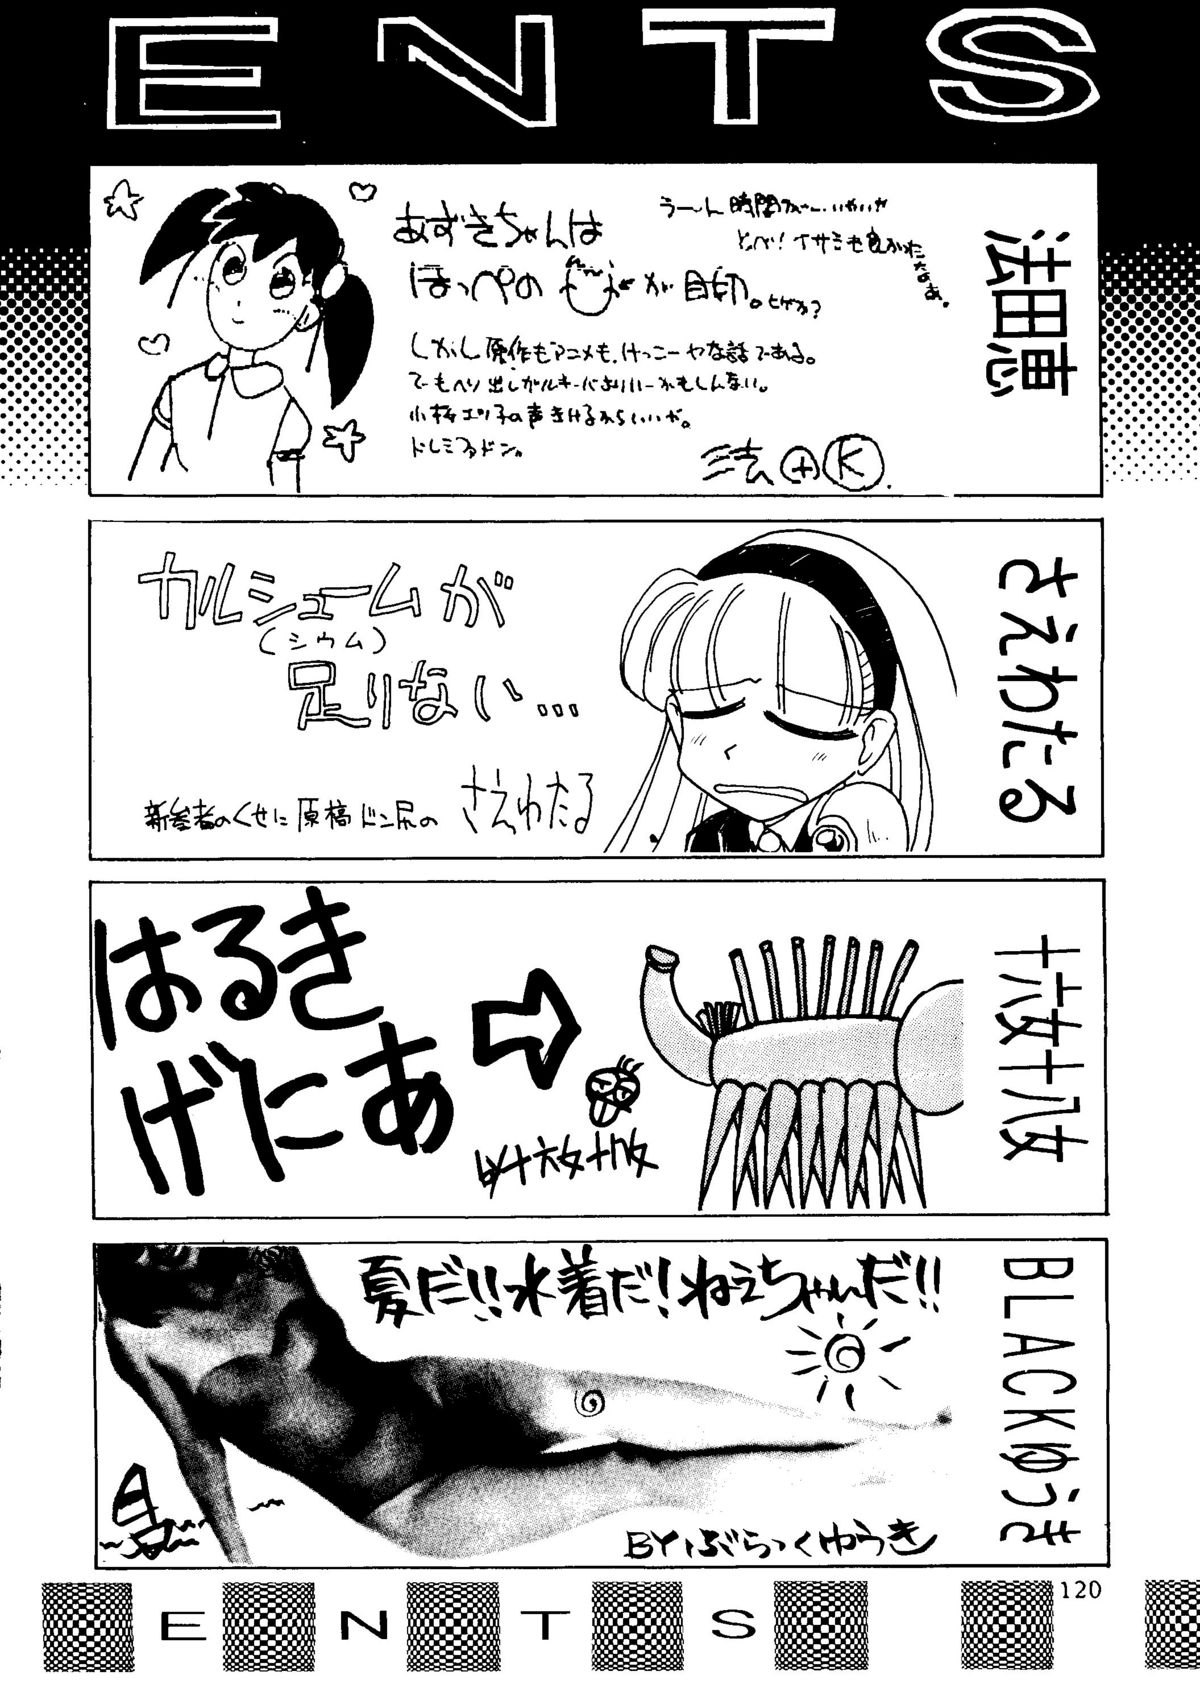 ENTS
法田恵
あずきちゃんは
ほっぺの が目印。ヒゲか?
うーん 時間が
イサミも良かったなあ。
しかし原作もアニメも、けっこーヤな話である。
小桜エツ子の声きけるからいいが。
ドレミファドン。
法田K.
さえわたる
カルシュームが
(シウム)
足りない…
新参者のくせに原稿ドン尻の さえわたる
十六女十八女
はるき
げにあ
by十六女十八女
BLACKゆうき
夏だ!!水着だ!ねえちゃんだ!!
BY.ぶらっくゆうき
120
ENTS